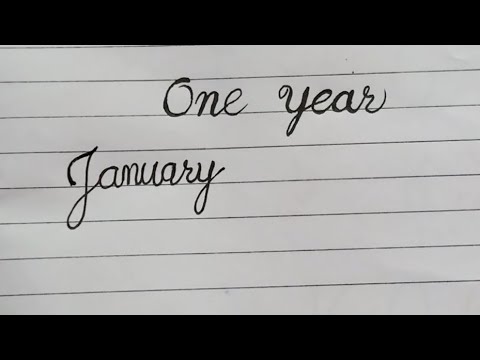 One year
January